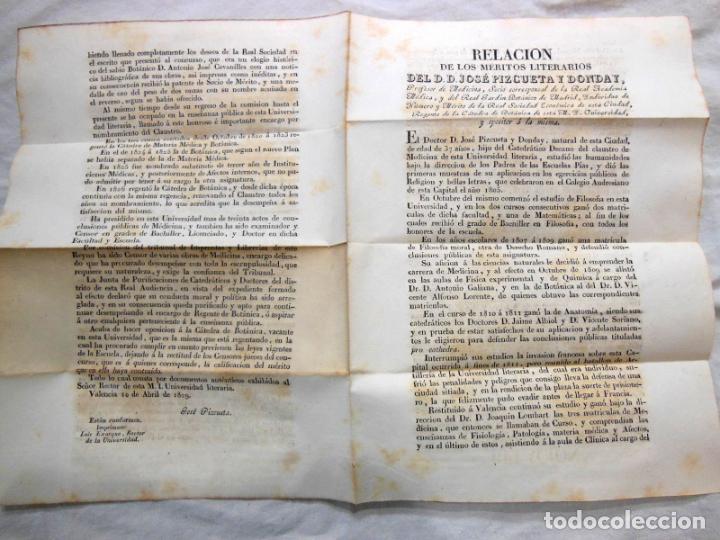 biendo llenado completamente los deseos de la Real Sociedad en
el escrito que presentó al concurso, que era un elogio histórico
del sabio Botánico D. Antonio José Cavanilles con una noticia
bibliográfica de sus obras, así impresas como inéditas, y en
su consecuencia recibió la patente de Socio de Mérito, y una me-
dalla de oro del peso de dos onzas con su nombre acuñada en el
reverso, segun se había ofrecido.
Al mismo tiempo desde su regreso de la comision hasta el
presente se ha ocupado en la enseñanza pública de esta Universi-
dad literaria, llamado á este honroso é importante encargo por
nombramiento del Claustro.
En los tres cursos contados desde Octubre de 1820 á 1823
regentó la Cátedra de Materia Médica y Botánica.
En el de 1824 á 1825 la de Botánica, que segun el nuevo Plan
se había separado de la de Materia Médica.
En 1825 fue nombrado substituto de tercer año de Institu-
ciones Médicas, y posteriormente de Afectos internos, que no
pudo admitir por tener á su cargo la otra asignatura.
En 1826 regentó la Cátedra de Botánica, y desde dicha época
continúa con la misma regencia, renovando el Claustro todos los
años su nombramiento, lo que acredita que la desempeña á sa-
tisfaccion del mismo.
Ha presidido en esta Universidad mas de treinta actos de con-
clusiones públicas de Medicina; y tambien ha sido examinador y
Censor en grados de Bachiller, Licenciado, y Doctor en dicha
Facultad y Escuela.
Por comision del tribunal de Imprentas y Librerías de este
Reyno ha sido Censor de varias obras de Medicina, encargo delica-
do que ha procurado desempeñar con toda la escrupulosidad, que
requiere su naturaleza, y exige la confianza del Tribunal.
La Junta de Purificaciones de Catedráticos y Doctores del dis-
trito de esta Real Audiencia, en vista del expediente formado
al efecto declaró que su conducta moral y política ha sido arre-
glada, y en su consecuencia queda purificado y apto para conti-
nuar desempeñando el encargo de Regente de Botánica, ó aspirar
á otro cualquiera perteneciente á la enseñanza pública.
Acaba de hacer oposicion á la Cátedra de Botánica, vacante
en esta Universidad, que es la misma que está regentando, en la
cual ha procurado cumplir en cuanto previenen las leyes vigentes
de la Escuela, dejando á la rectitud de los Censores jueces del con-
curso, que es á quienes corresponde, la calificacion del mérito
que en ella haya contraido.
Todo lo cual consta por documentos auténticos exhibidos al
Señor Rector de esta M. I. Universidad literaria.
Valencia 12 de Abril de 1829.
José Pizcueta.
Están conformes.
Imprímase
Luis Exarque, Rector
de la Universidad.
RELACION
DE LOS MÉRITOS LITERARIOS
DEL D.D. JOSÉ PIZCUETA Y DONDAY,
Profesor de Medicina, Socio corresponsal de la Real Academia
Médica, y del Real Jardin Botánico de Madrid, Individuo de
Número y Mérito de la Real Sociedad Económica de esta Ciudad,
Regente de la Cátedra de Botánica de esta M. I. Universidad,
y opositor á la misma.
El Doctor D. José Pizcueta y Donday, natural de esta Ciudad,
de edad de 37 años, hijo del Catedrático Decano del claustro de
Medicina de esta Universidad literaria, estudió las humanidades
bajo la direccion de los Padres de las Escuelas Pías, y dió las
primeras muestras de su aplicacion en los ejercicios públicos de
Religion y bellas letras, que celebraron en el Colegio Andresiano
de esta Capital el año 1805.
En Octubre del mismo comenzó el estudio de Filosofía en esta
Universidad, y en los dos cursos consecutivos ganó dos matricu-
las de dicha facultad, y una de Matemáticas; al fin de los
cuales recibió el grado de Bachiller en Filosofía, con todos los
honores de la escuela.
En los años escolares de 1807 á 1809 ganó una matrícula
de Filosofía moral, otra de Derecho Romano, y defendió con-
clusiones públicas de esta asignatura.
Su aficion á las ciencias naturales le decidió á emprender la
carrera de Medicina, y al efecto en Octubre de 1809 se alistó
en las aulas de Física experimental, y de Química á cargo del
Dr. D. Antonio Galiana, y en la de Botánica al del Dr. D. Vi-
cente Alfonso Lorente, de quienes obtuvo las correspondientes
matrículas.
En el curso de 1810 á 1811 ganó la de Anatomía, siendo sus
catedráticos los Doctores D. Jaime Albiol y D. Vicente Soriano,
y en prueba de estar satisfechos de su aplicacion y adelantamien-
tos le eligieron para defender las conclusiones públicas tituladas
pro cathedra.
Interrumpió sus estudios la invasion francesa sobre esta Ca-
pital ocurrida á fines de 1811, pasó reunido al batallon de Ar-
tillería de la Universidad literaria, del cual era individuo, su-
frió las penalidades y peligros que consigo lleva la defensa de una
ciudad sitiada, y en la rendicion de la plaza la suerte de prisione-
ro, la que felizmente pudo evadir antes de llegar á Francia.
Restituido á Valencia continuó su estudio y ganó bajo la di-
reccion del Dr. D. Joaquin Lombart las tres matrículas de Me-
dicina, que entonces se llamaban de Curso, y comprendian las
enseñanzas de Fisiología, Patología, materia médica y Afectos,
y en el último de estos, asistiendo á la aula de Clínica al cargo del
todocoleccion